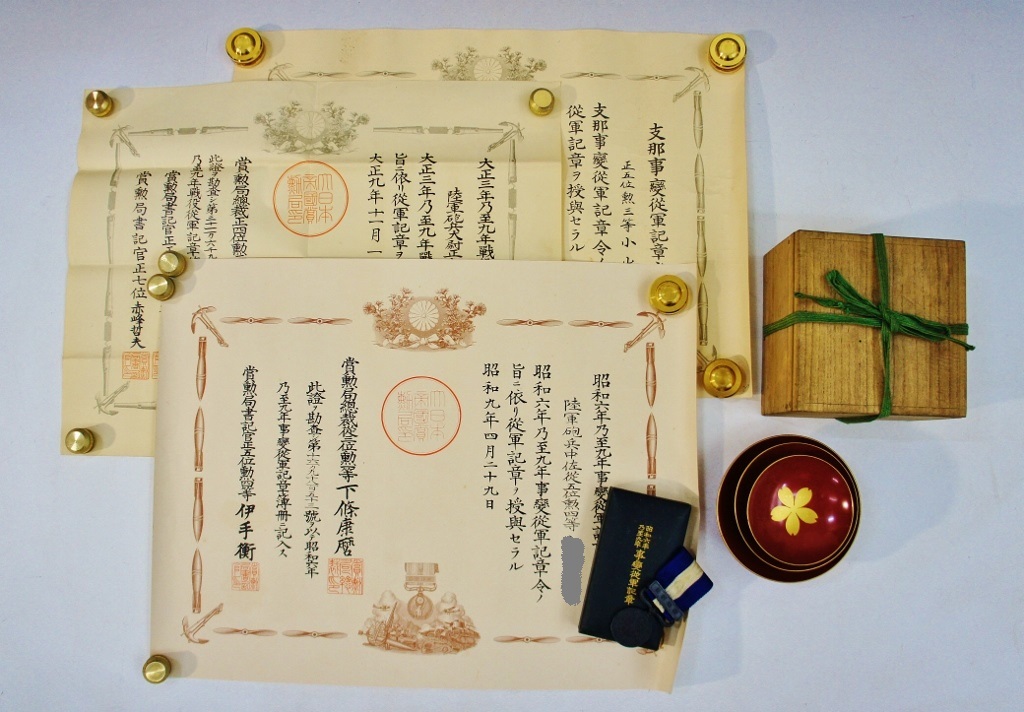 支那事變從軍記章
正五位勲三等小山
支那事變從軍記章令ノ
從軍記章ヲ授與セラル
大正三年乃至九年戰
陸軍砲兵大尉正
大正三年乃至九年
旨ニ依リ從軍記章ヲ
大正九年十一月一
大日本
帝國賞
勲局印
賞勲局總裁正四位勲
此證ヲ勘査シ第
乃至九年戰役從軍記章
賞勲局書記官正
賞勲局書記官正七位赤峰哲夫
昭和六年乃至九年事變從軍
陸軍砲兵中佐從五位勲四等
昭和六年乃至九年事變從軍記章令ノ
旨ニ依リ從軍記章ヲ授與セラル
昭和九年四月二十九日
大日本
帝國賞
勲局印
賞勲局總裁從三位勲二等下條康麿
此證ヲ勘査シ第十六號ヲ以テ昭和六年
乃至九年事變從軍記章簿冊ニ記入ス
賞勲局書記官正五位勲四等伊手衡
昭和六年
乃至九年
事變從軍記章